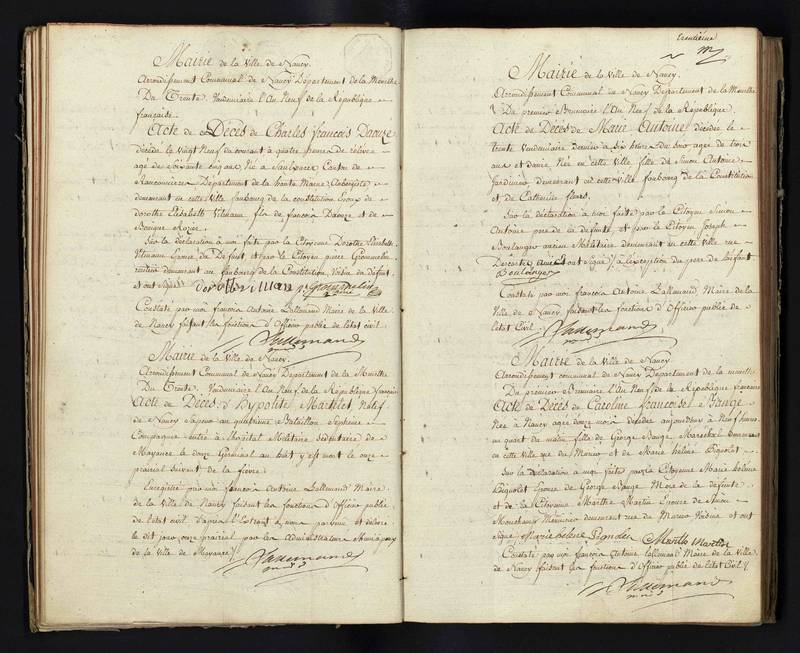 Mairie de la Ville de Nancy.
Arrondissement Communal de Nancy Département de la Meurthe
Du Trente Vendémiaire l'An Neuf de la République
française
Acte de Décès de Charles françois Daouze
décédé le vingt Neuf du courant à quatre heures de relevée
agé de Soixante cinq ans, Né à Canton de
Département de la haute Marne, Aubergiste
demeurant en cette Ville faubourg de la Constitution Epoux de
dorothé Elisabeth fils de françois Daouze et de
Sur la déclaration à moi faite par la Citoyenne Dorothé Elisabeth
Veuve de Défunt, et par le Citoyen pierre
demeurant au faubourg de la Constitution, Voisin du défunt,
et ont signé
Constaté par moi françois Antoine Lallemand Maire de la Ville
de Nancy faisant les fonctions d'Officier public de l'état civil.
Lallemand
Mairie de la Ville de Nancy.
Arrondissement Communal de Nancy Département de la Meurthe
Du Trente Vendémiaire l'An Neuf de la République française
Acte de Décès d'hypolite Martelet Natif
de Nancy Sapeur au quatrième Bataillon Septieme
Compagnie entré à l'hôpital Militaire sédentaire de
Mayance le douze Germinal au huit y est mort le onze
prairial suivant de la fièvre.
Enregistré par moi françois Antoine Lallemand Maire
de la Ville de Nancy faisant les fonctions d'Officier public
de l'état civil d'après l'Extrait à moi parvenu et délivré
le dit jour onze prairial par les Administrateurs Municipaux
de la Ville de Mayance.
Lallemand
trentième
Mairie de la Ville de Nancy.
Arrondissement Communal de Nancy Département de la Meurthe
Du premier Brumaire l'An Neuf de la République.
Acte de Décès de Marie Antoine décédée le
trente Vendémiaire dernier à Six heures du Soir agée de trois
ans et demie Née en cette Ville fille de Simon Antoine
Jardinier demeurant en cette Ville faubourg de la Constitution
et de Catherine
Sur la déclaration à moi faite par le Citoyen Simon
Antoine pere de la défunte et par le Citoyen Joseph
Boulanger ancien Militaire demeurant en cette Ville rue
ont signé à l'exception du pere de l'enfant
Boulanger
Constaté par moi françois Antoine Lallemand, Maire de la
Ville de Nancy faisant les fonctions d'Officier public de
l'état Civil.
Lallemand
Mairie de la Ville de Nancy
Arrondissement communal de Nancy Département de la meurthe
Du premier Brumaire l'An Neuf de la République française
Acte de Décès de Caroline françoise Bauge
Née à Nancy agée de onze mois décédée aujourd'hui à Neuf heures
un quart du matin fille de George Bauge Maréchal demeurant
en cette Ville rue de Meurus et de Marie hélène Bignolet
Sur la déclaration à moi faite par la Citoyenne Marie hélène
Bignolet Epouse de George Bauge Mere de la défunte
et de la Citoyenne Marthe Martin Epouse de Simon
Mouchaux Menuisier demeurant rue de Meurus Voisine et ont
signé Marie helene Marthe Martin
Constaté par moi françois Antoine Lallemand Maire de la Ville
de Nancy faisant les fonctions d'Officier public de l'état Civil.
Lallemand